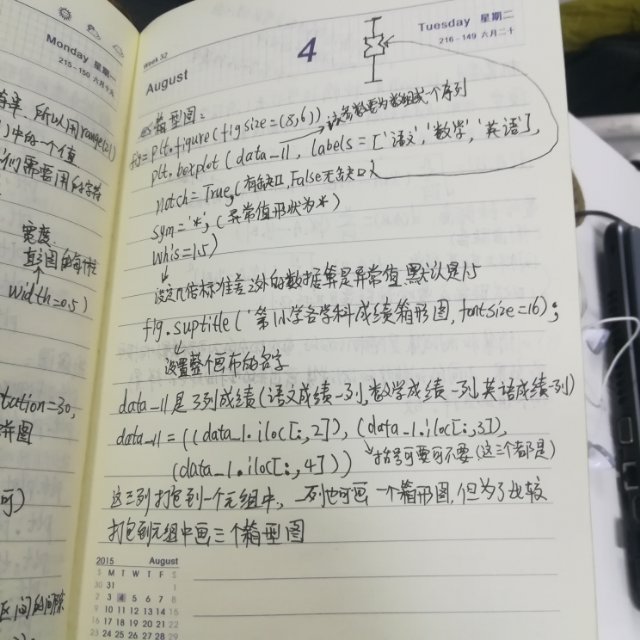 Monday 星期一
215-150 六月十九
所以用range(21)
中的一个值
们需要用的字符
宽度:
width=0.5)
tation=30,
饼图
可)
区间的间隙
Week 32
August
4
Tuesday 星期二
216-149 六月二十
箱型图:
fig=plt.figure(figsize=(8,6))
plt.boxplot(data_11, labels=['语文','数学','英语'],
notch=True,(有缺口,False无缺口)
sym='*',(异常值形状为*)
whis=1.5)
设定几倍标准差之外的数据算是异常值,默认是1.5
fig.suptitle('第1小学各学科成绩箱形图,fontsize=16);
设置整个画布的名字
data_11是3列成绩(语文成绩一列,数学成绩一列,英语成绩一列)
data_11=((data_1.iloc[:,2]),(data_1.iloc[:,3]),
(data_1.iloc[:,4]))
括号可要可不要(这三个都是)
这三列打包到一个元组中,一列也可画一个箱形图,但为了比较
打包到元组中画三个箱型图
2015 August
S M T W T F S
30 31 1
2 3 4 5 6 7 8
9 10 11 12 13 14 15
16 17 18 19 20 21 22
23 24 25 26 27 28 29